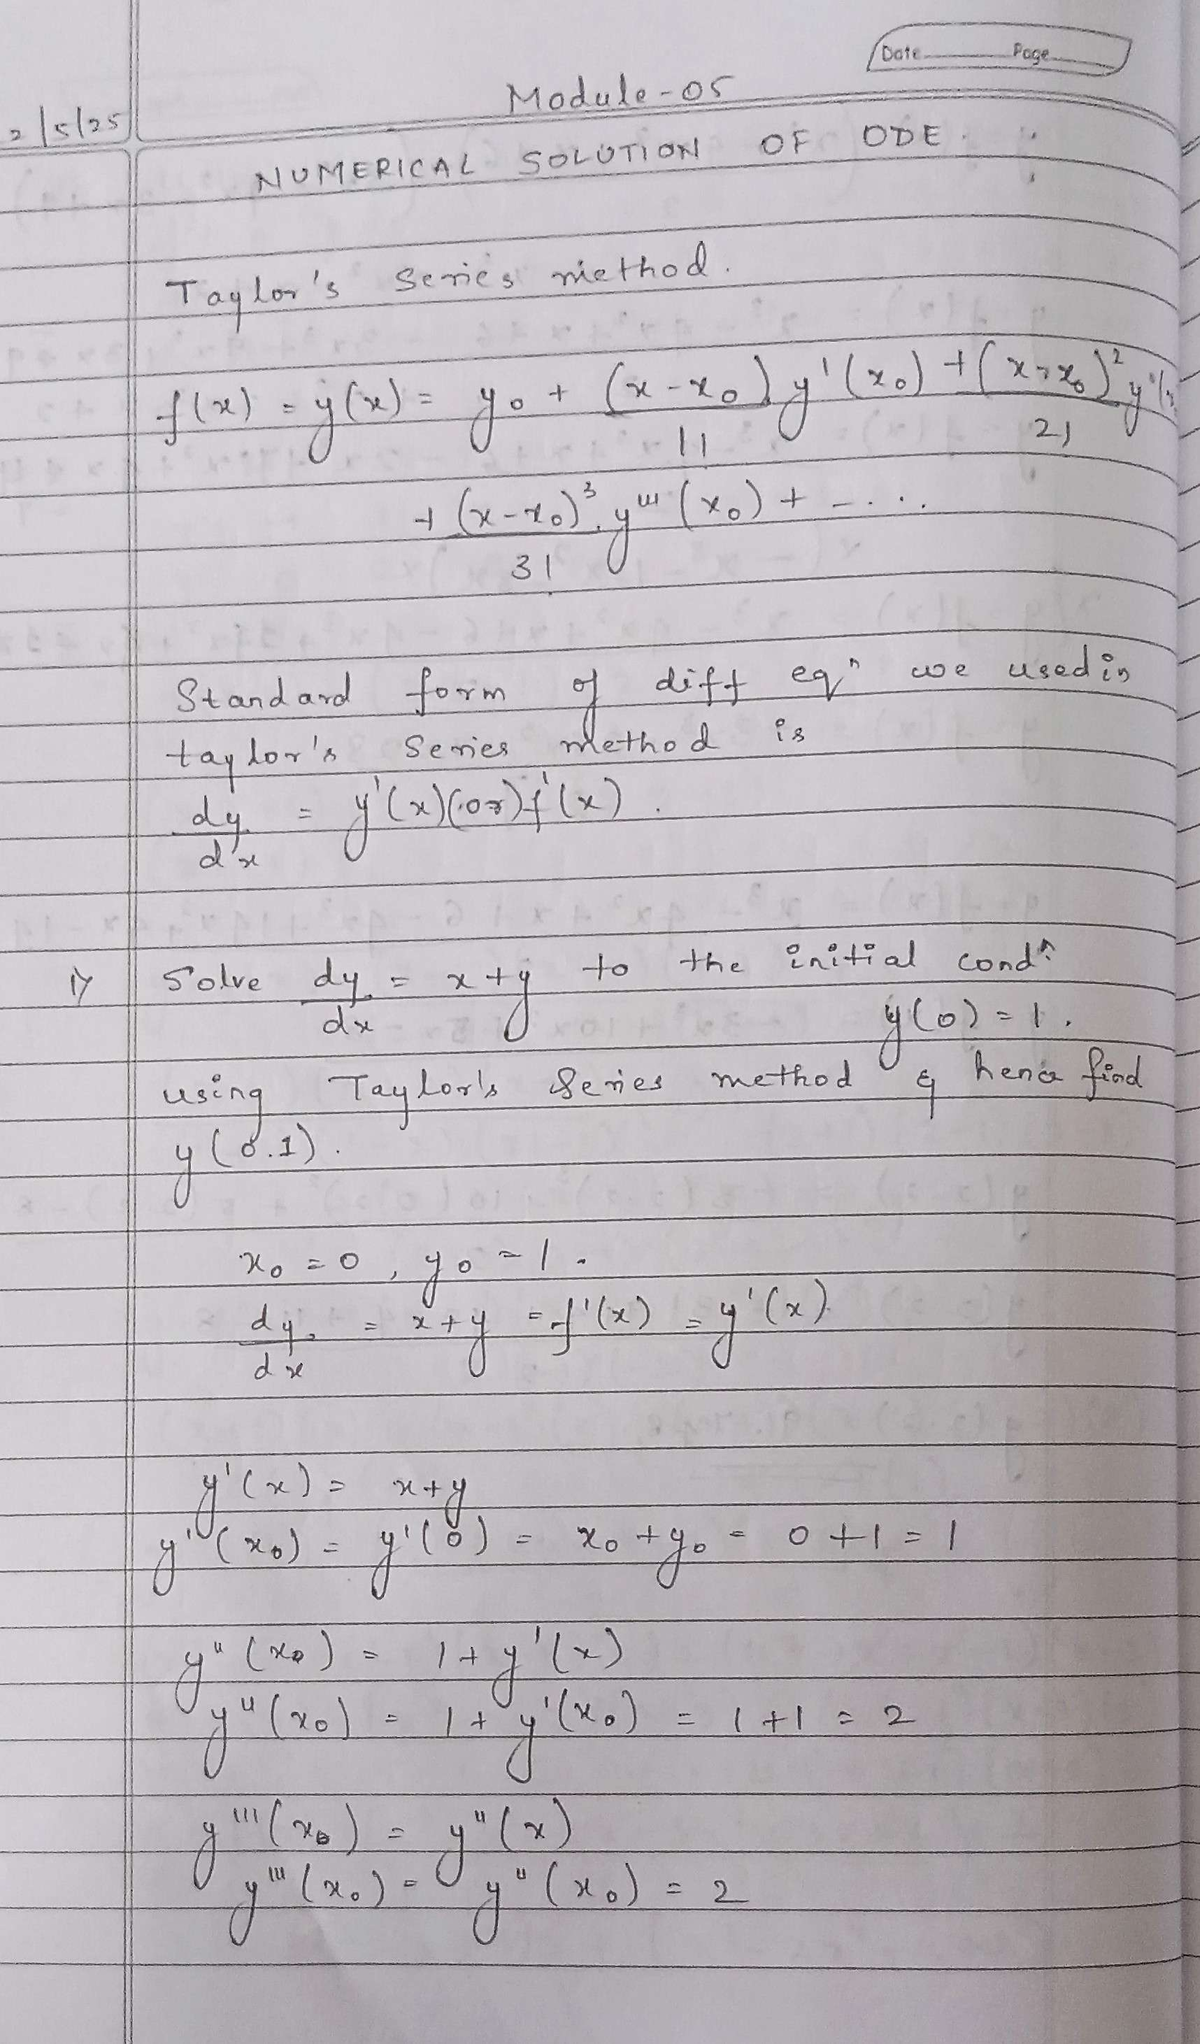 Date Page
Module-05
2/5/25
NUMERICAL SOLUTION OF ODE.
Taylor's Series method.
f(x) = y(x) = y₀ + (x-x₀)/1! y'(x₀) + (x-x₀)²/2! y''(x₀)
+ (x-x₀)³/3! y'''(x₀) + - . . .
Standard form of diff eqⁿ we used in
taylor's Series method is
dy/dx = y'(x)(or)f'(x).
1) Solve dy/dx = x+y to the initial condⁿ
y(0) = 1.
using Taylor's Series method & hence find
y(0.1).
x₀ = 0, y₀ = 1.
dy/dx = x+y = f'(x) = y'(x)
y'(x) = x+y
y'(x₀) = y'(0) = x₀+y₀ = 0+1 = 1
y''(x₀) = 1+y'(x)
y''(x₀) = 1+y'(x₀) = 1+1 = 2
y'''(x₀) = y''(x)
y'''(x₀) = y''(x₀) = 2